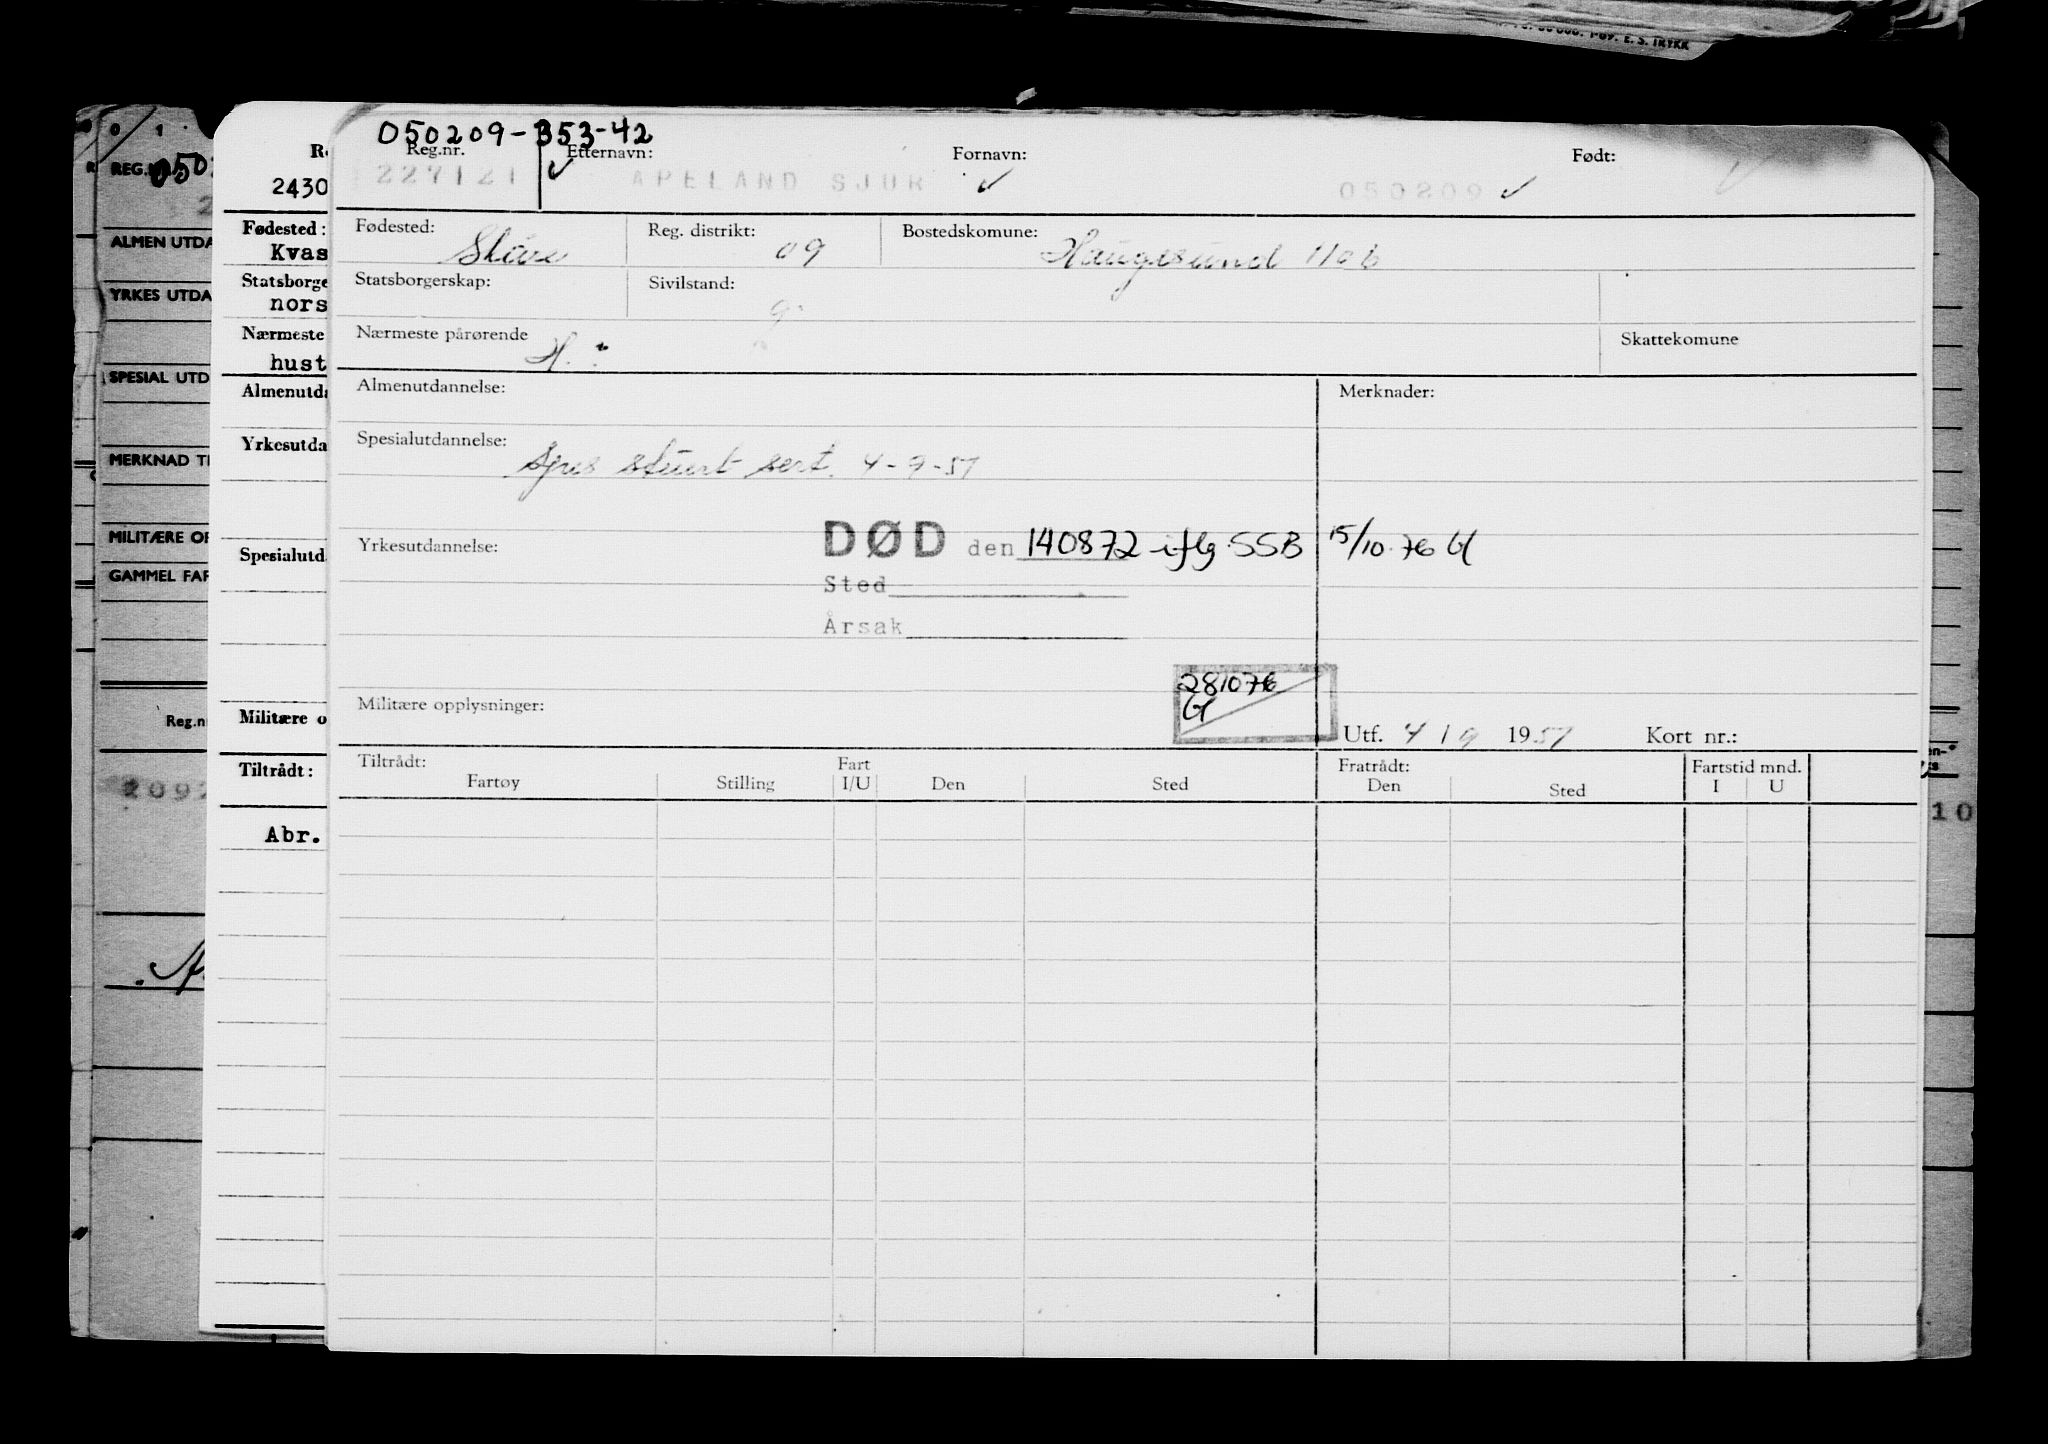 50 000. 1-69. E. S. TRYKK
0 1
REG.
050
ALMEN UTDA
YRKES UTDA
SPESIAL UTD
MERKNAD TI
MILITÆRE OP
GAMMEL FAR
Reg.n
2092
2430
Fødested:
Kvas
Statsborge
nors
Nærmeste
hust
Almenutda
Yrkesutda
Spesialutd
Militære o
Tiltrådt:
Abr.
10
050209-353-42
Reg.nr. Etternavn: Fornavn: Født:
227121 APELAND SJUR 050209
Fødested: Reg. distrikt: 09 Bostedskomune: Haugesund 1106
Statsborgerskap: Sivilstand: g
Nærmeste pårørende H. Skattekomune
Almenutdannelse: Merknader:
Spesialutdannelse:
stuert sert. 4-9-57
Yrkesutdannelse: DØD den 140872 iflg. SSB 15/10.76
Sted
Årsak
281076
Militære opplysninger:
Utf. 4 / 9 1957 Kort nr.:
Tiltrådt: Fart Fratrådt: Fartstid mnd.
Fartøy Stilling I/U Den Sted Den Sted I U